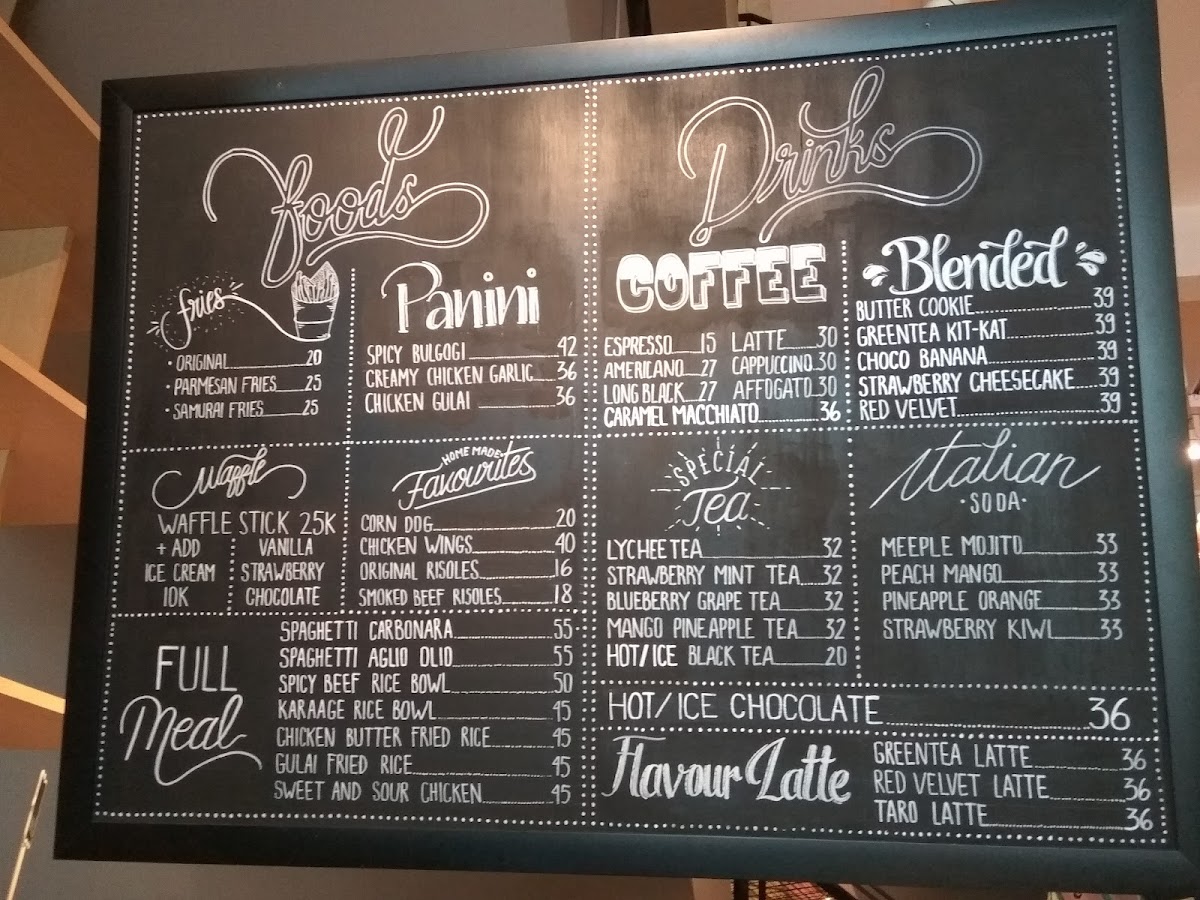 foods
fries
• ORIGINAL 20
• PARMESAN FRIES 25
• SAMURAI FRIES 25
Panini
SPICY BULGOGI 42
CREAMY CHICKEN GARLIC 36
CHICKEN GULAI 36
Waffle
WAFFLE STICK 25K
+ ADD
ICE CREAM
10K
VANILLA
STRAWBERRY
CHOCOLATE
HOME MADE
Favourites
CORN DOG 20
CHICKEN WINGS 40
ORIGINAL RISOLES 16
SMOKED BEEF RISOLES 18
FULL
Meal
SPAGHETTI CARBONARA 55
SPAGHETTI AGLIO OLIO 55
SPICY BEEF RICE BOWL 50
KARAAGE RICE BOWL 45
CHICKEN BUTTER FRIED RICE 45
GULAI FRIED RICE 45
SWEET AND SOUR CHICKEN 45
Drinks
COFFEE
ESPRESSO 15 LATTE 30
AMERICANO 27 CAPPUCCINO 30
LONG BLACK 27 AFFOGATO 30
CARAMEL MACCHIATO 36
Blended
BUTTER COOKIE 39
GREENTEA KIT-KAT 39
CHOCO BANANA 39
STRAWBERRY CHEESECAKE 39
RED VELVET 39
SPECIAL
Tea
LYCHEE TEA 32
STRAWBERRY MINT TEA 32
BLUEBERRY GRAPE TEA 32
MANGO PINEAPPLE TEA 32
HOT/ICE BLACK TEA 20
Italian
• SODA •
MEEPLE MOJITO 33
PEACH MANGO 33
PINEAPPLE ORANGE 33
STRAWBERRY KIWI 33
HOT/ICE CHOCOLATE 36
Flavour Latte
GREENTEA LATTE 36
RED VELVET LATTE 36
TARO LATTE 36